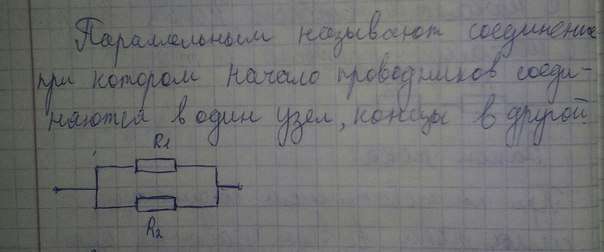 Параллельным называют соединение
при котором начало проводников соеди-
няются в один узел, концы в другой.
R1
R2